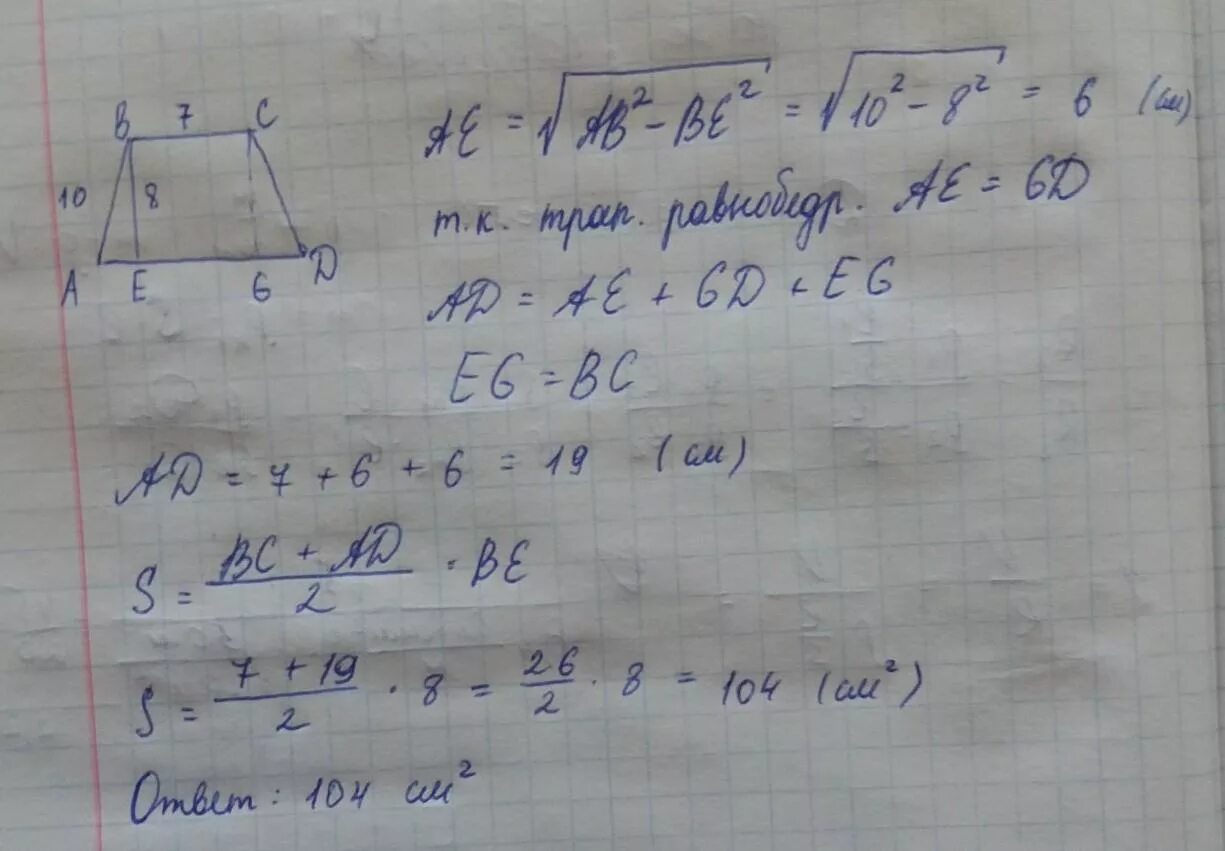 B 7 C
10 8
A E G D
AE = √(AB² - BE²) = √(10² - 8²) = 6 (см)
т.к. трап. равнобедр. AE = GD
AD = AE + GD + EG
EG = BC
AD = 7 + 6 + 6 = 19 (см)
S = (BC + AD)/2 · BE
S = (7 + 19)/2 · 8 = 26/2 · 8 = 104 (см²)
Ответ: 104 см²